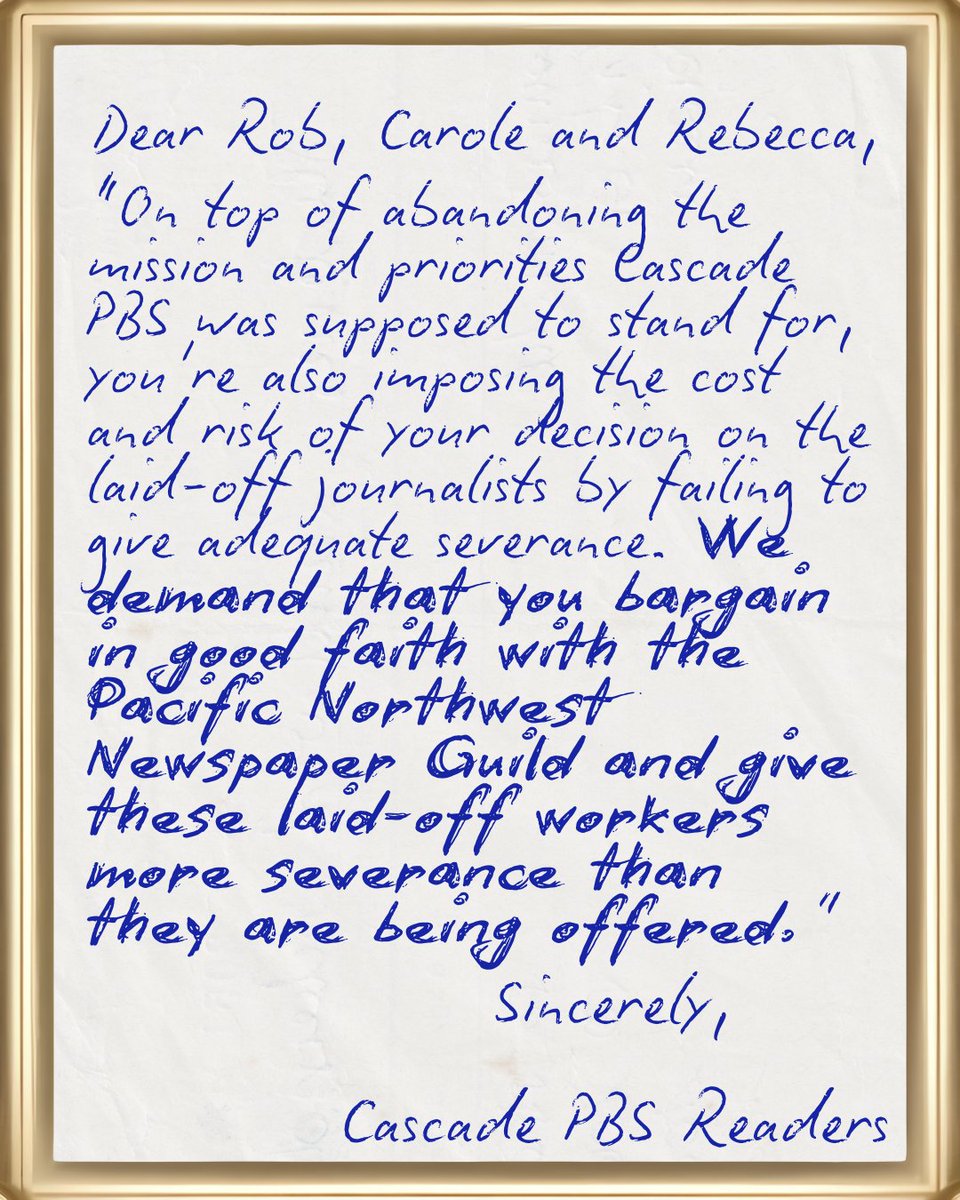 Dear Rob, Carole and Rebecca,
"On top of abandoning the
mission and priorities Cascade
PBS was supposed to stand for,
you're also imposing the cost
and risk of your decision on the
laid-off journalists by failing to
give adequate severance. We
demand that you bargain
in good faith with the
Pacific Northwest
Newspaper Guild and give
these laid-off workers
more severance than
they are being offered."
Sincerely,
Cascade PBS Readers